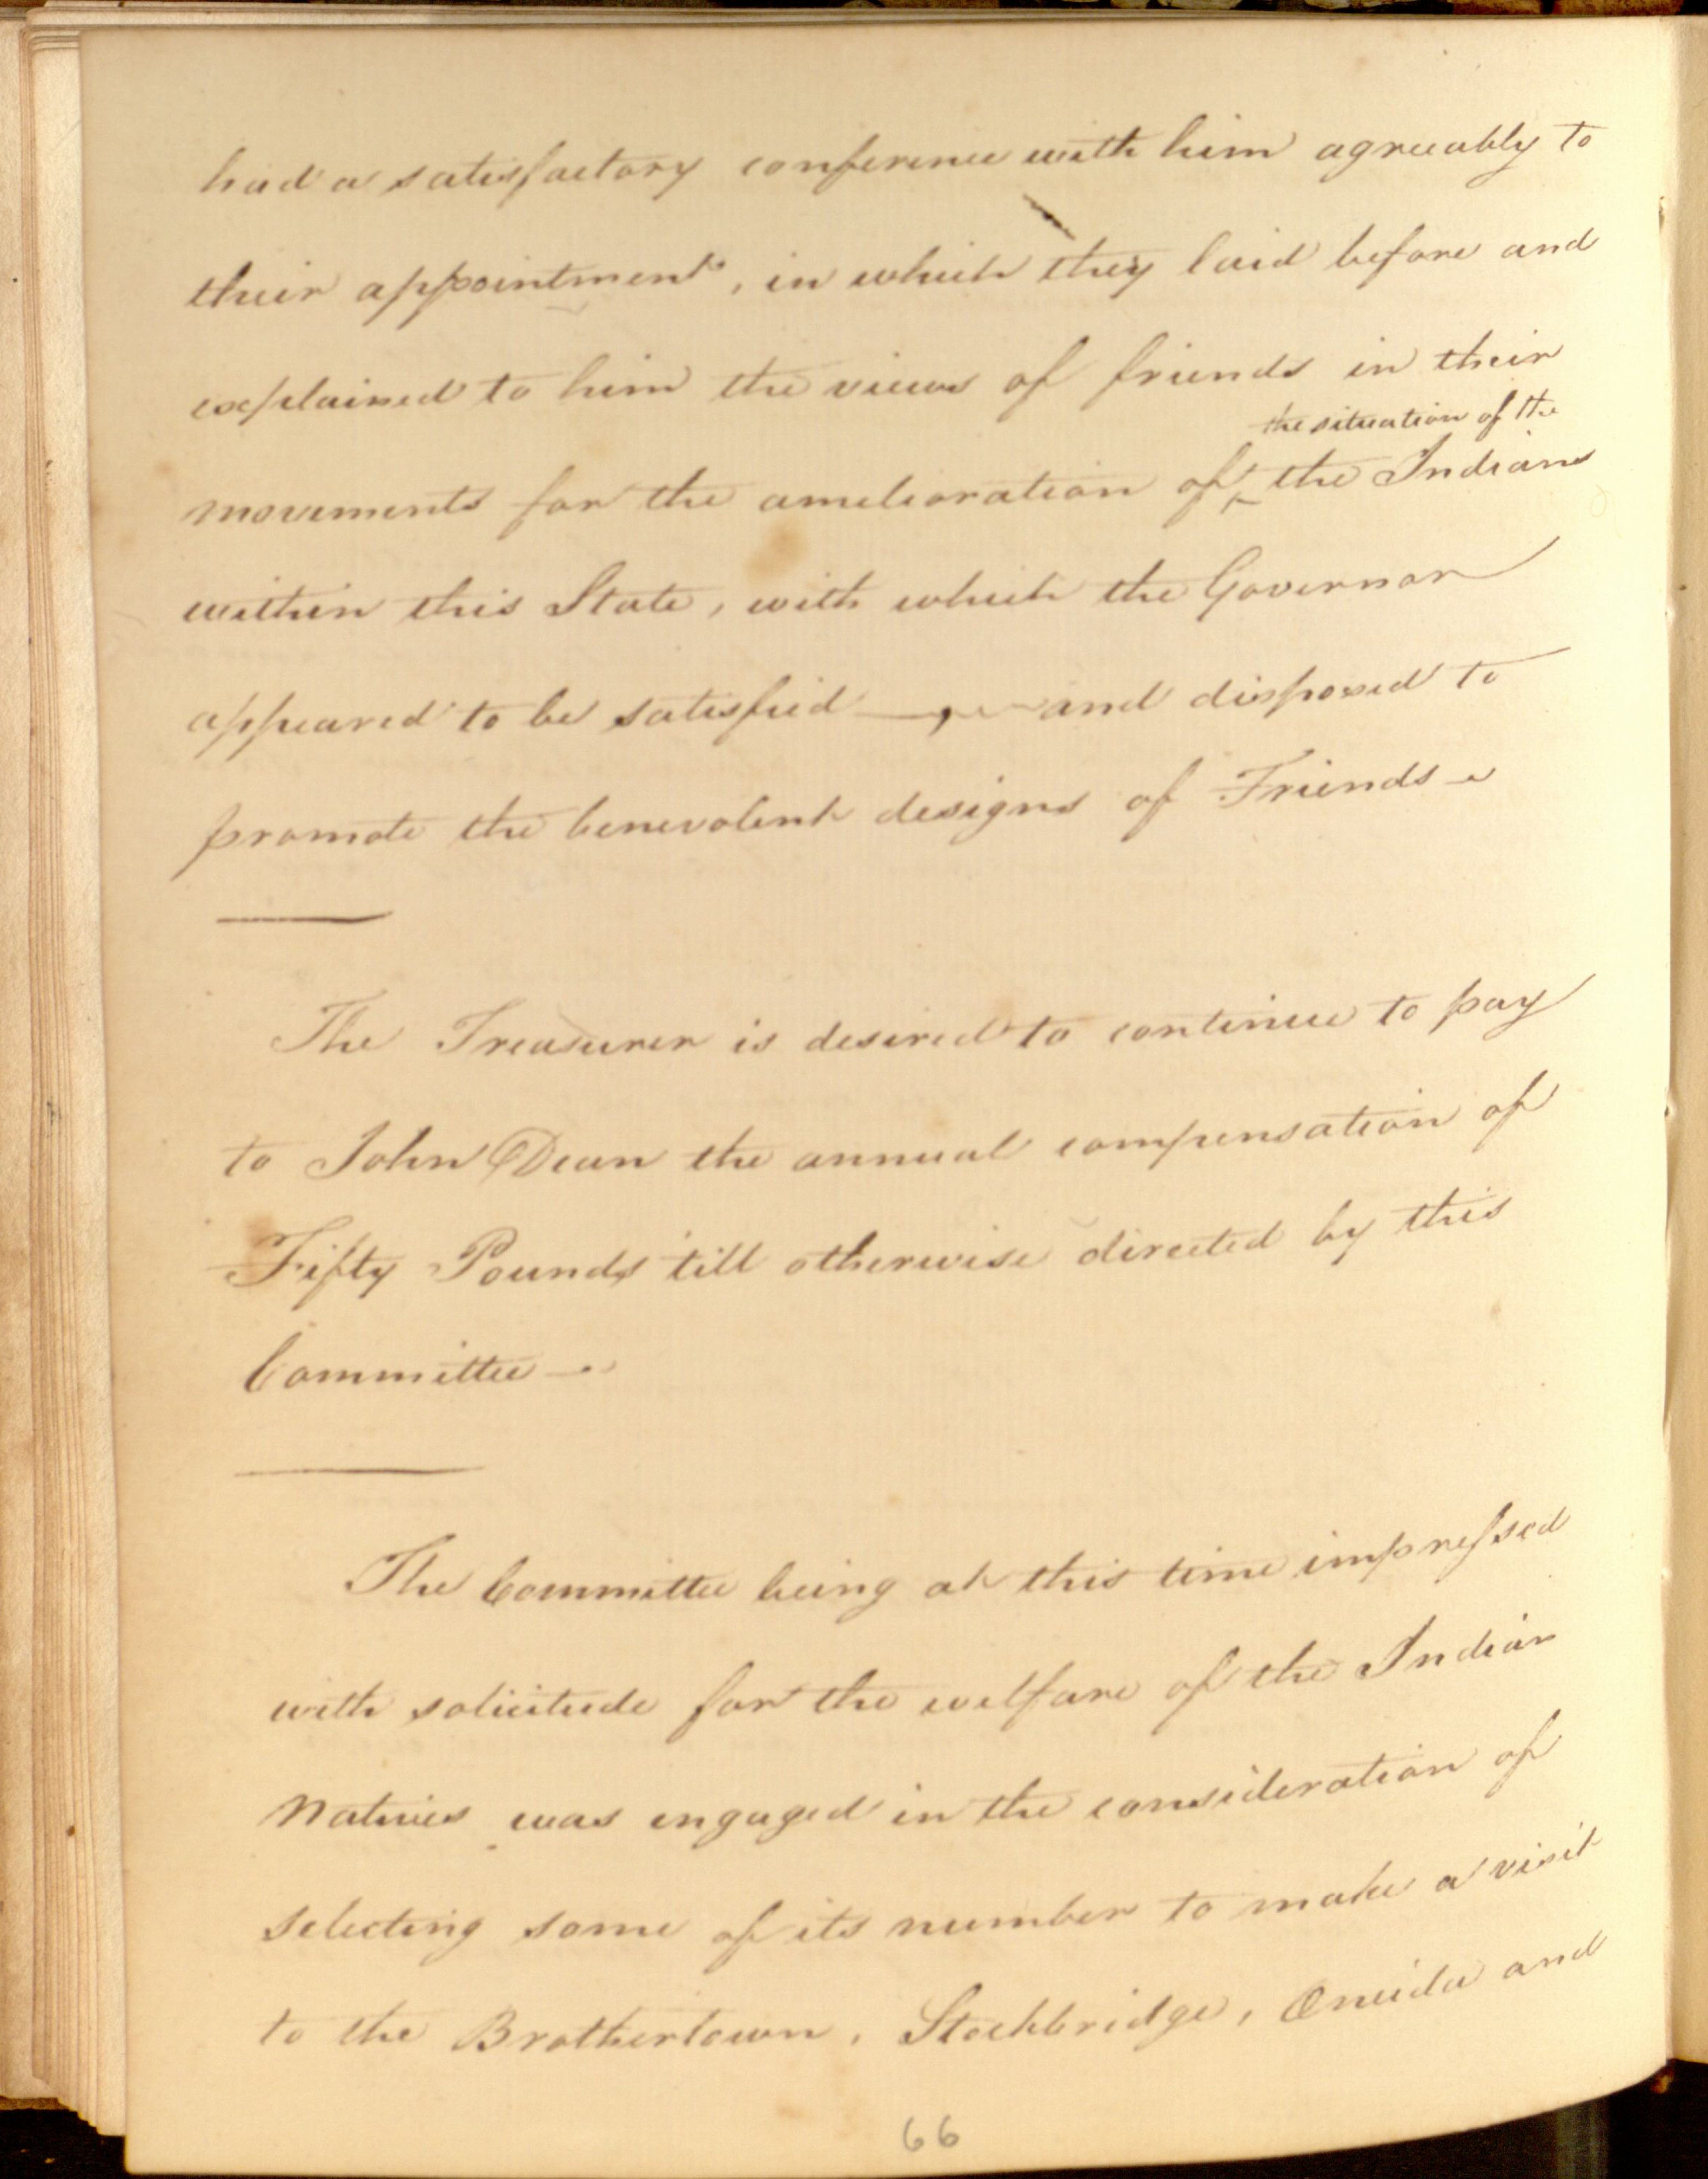 had a satisfactory conference with him agreeably to
their appointment, in which they laid before and
explained to him the views of friends in their
the situation of the
movements for the amelioration of ‸ the Indians
within this State, with which the Governor
appeared to be satisfied —, and disposed to
promote the benevolent designs of Friends —
The Treasurer is desired to continue to pay
to John Dean the annual compensation of
Fifty Pounds till otherwise directed by this
Committee —
The Committee being at this time impressed
with solicitude for the welfare of the Indian
Natives was engaged in the consideration of
selecting some of its number to make a visit
to the Brothertown, Stockbridge, Oneida and
66